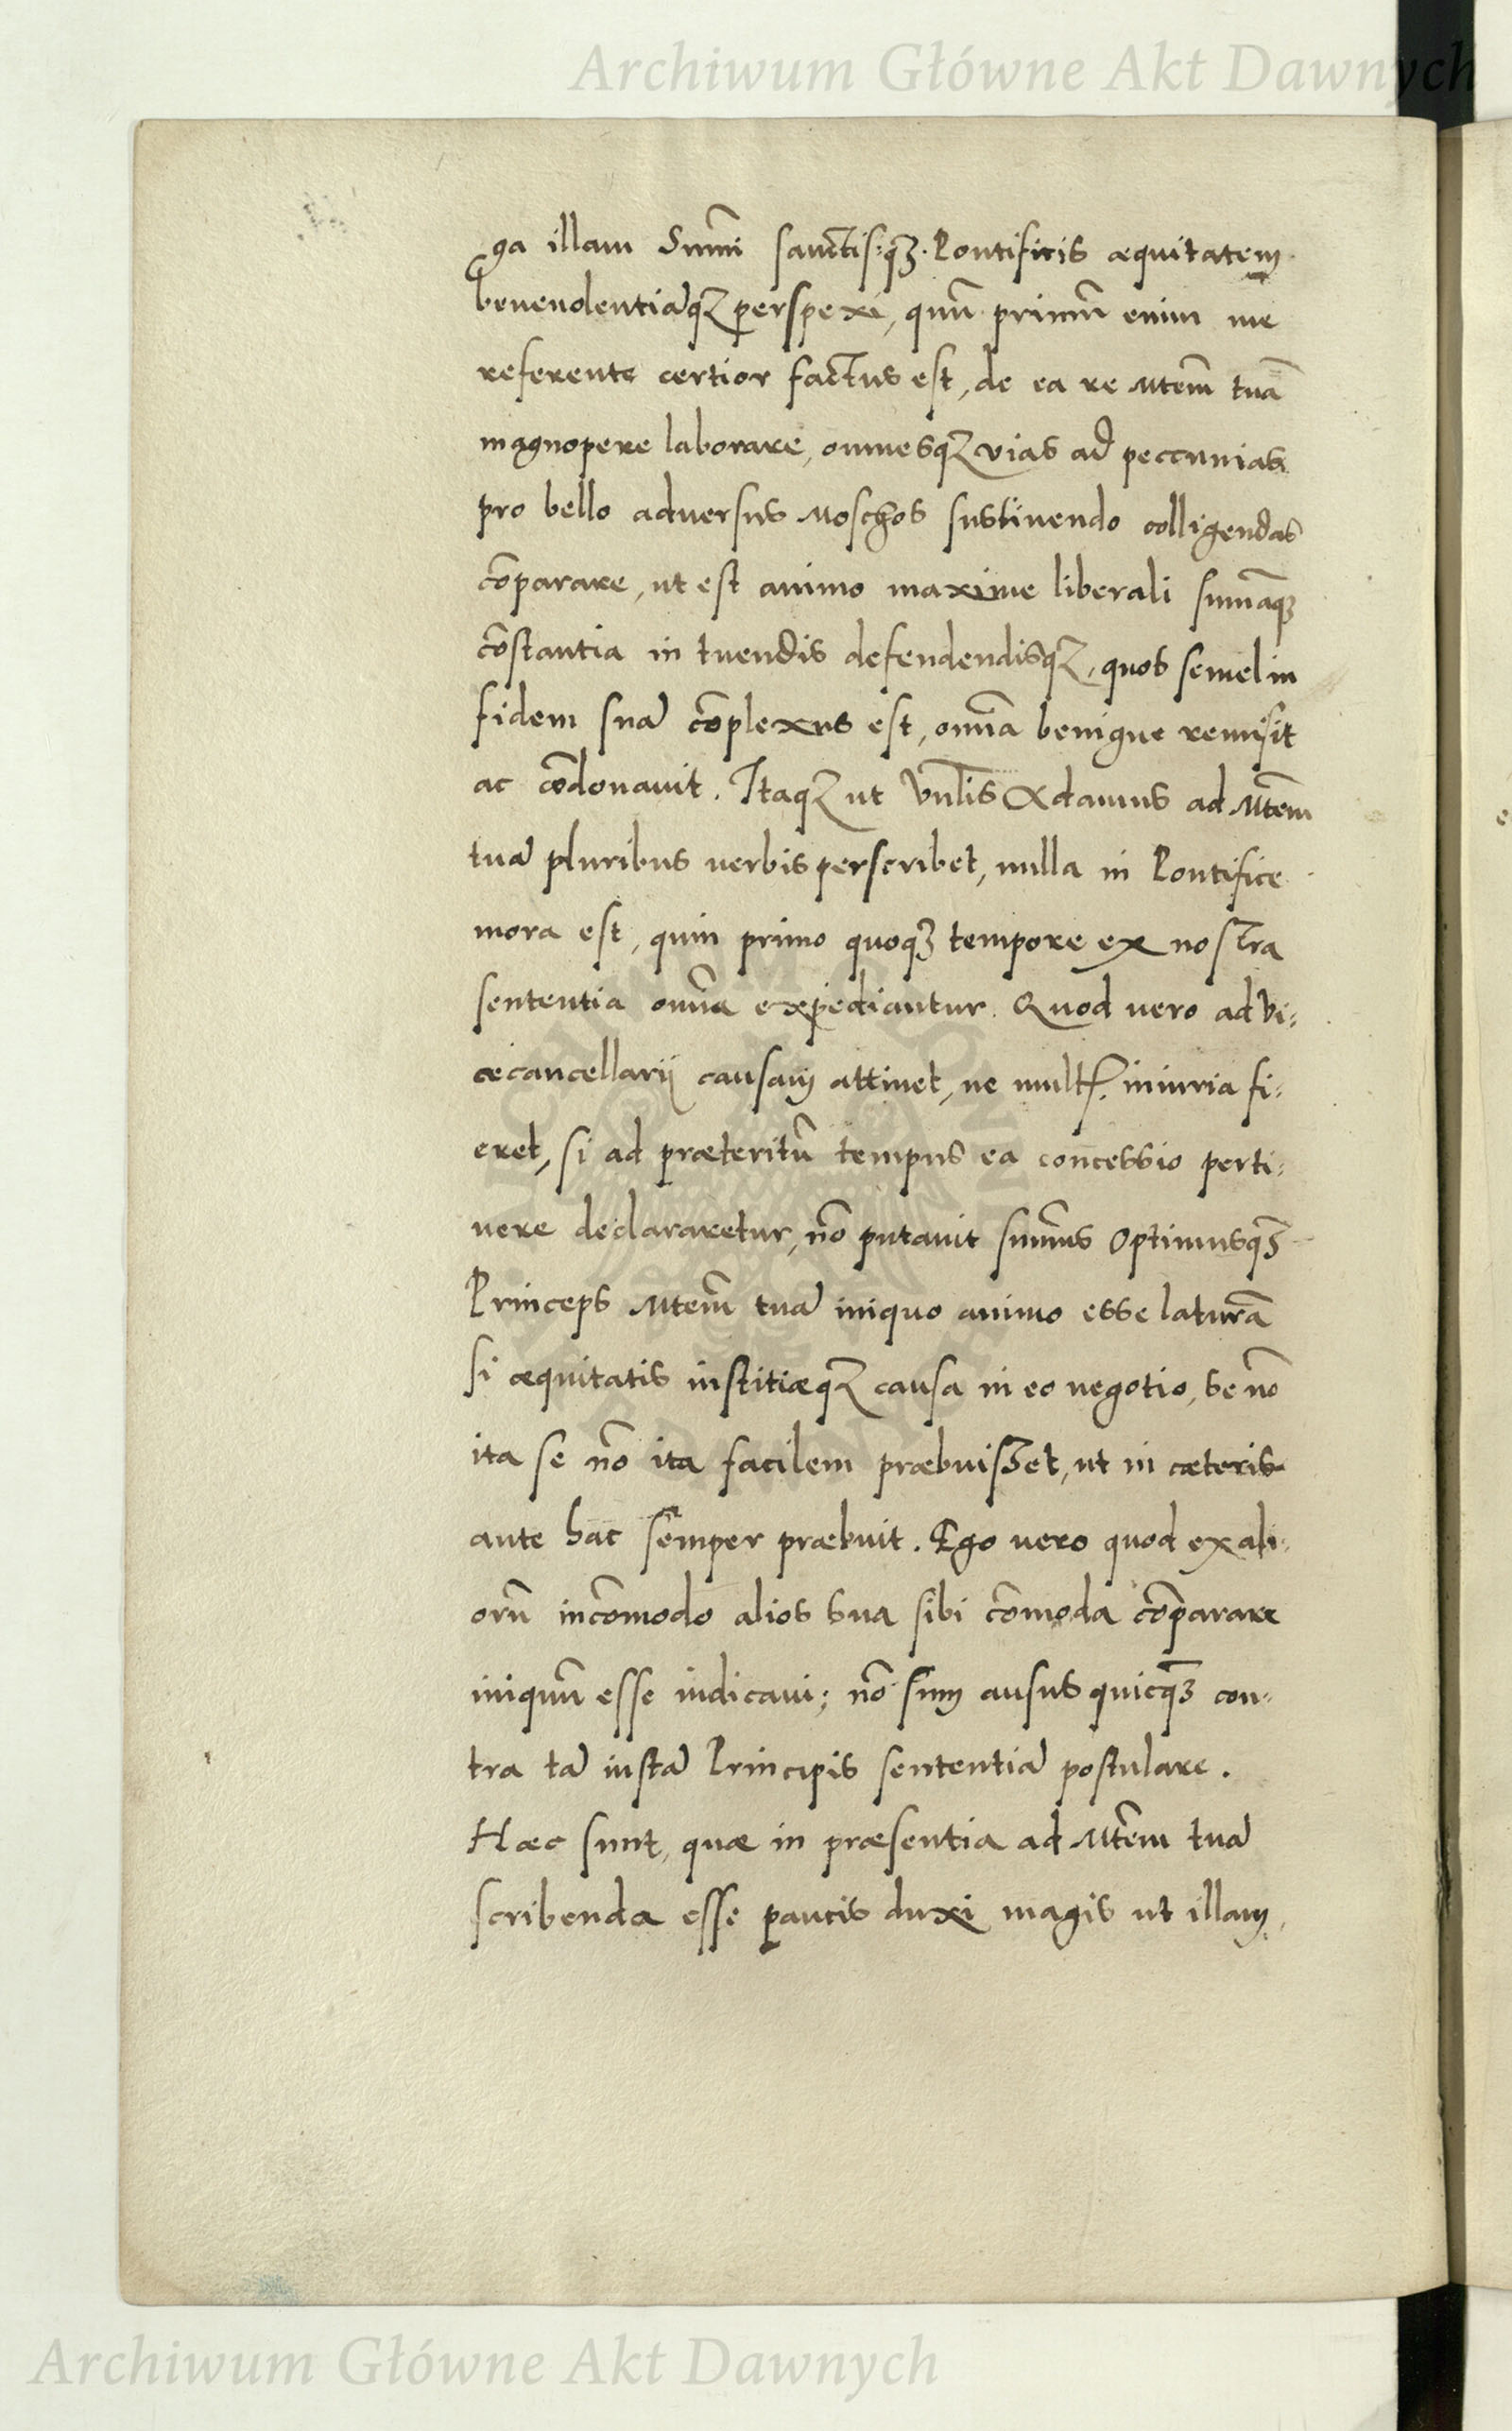 Archiwum Główne Akt Dawnych
ga illam Sum̃i sanctis:q3. Pontificis æquitatem
beneuolentiãq3 perspexi, quũ primũ enim me
referente certior factus est, de ea re Mtem̃ tuã
magnopere laborare, omnesq3 vias ad peccunias
pro bello aduersus Moschos sustinendo colligendas
cõparare, ut est animo maxime liberali sum̃aq3
cõstantia in tuendis defendendisq3, quos semel in
fidem suã cõplexus est, om̃ia benigne remisit
ac cõdonauit. Itaq3 ut Vul̃is Adamus ad Mtem̃
tuã pluribus uerbis perscribet, nulla in Pontifice
mora est, quin primo quoq3 tempore ex nostra
sententia om̃ia expediantur. Quod uero ad Vi=
cecancellarij causam attinet, ne mult. iniuria fi=
eret, si ad præteritũ tempus ea concessio perti=
nere declararetur, nõ putauit sum̃us Optimusq3
Princeps Mtem̃ tuã iniquo animo esse laturã
si æquitatis iustitiæq3 causa in eo negotio, se nõ
ita se nõ ita facilem præbuisset, ut in cæteris
ante hac semper præbuit. Ego uero quod ex ali=
orũ incõmodo alios sua sibi cõmoda cõparare
iniquũ esse iudicaui; nõ sum ausus quicq3 con=
tra tã iustã Principis sententiã postulare.
Hæc sunt, quæ in præsentia ad Mtem̃ tuã
scribenda esse paucis duxi magis ut illam,
Archiwum Główne Akt Dawnych